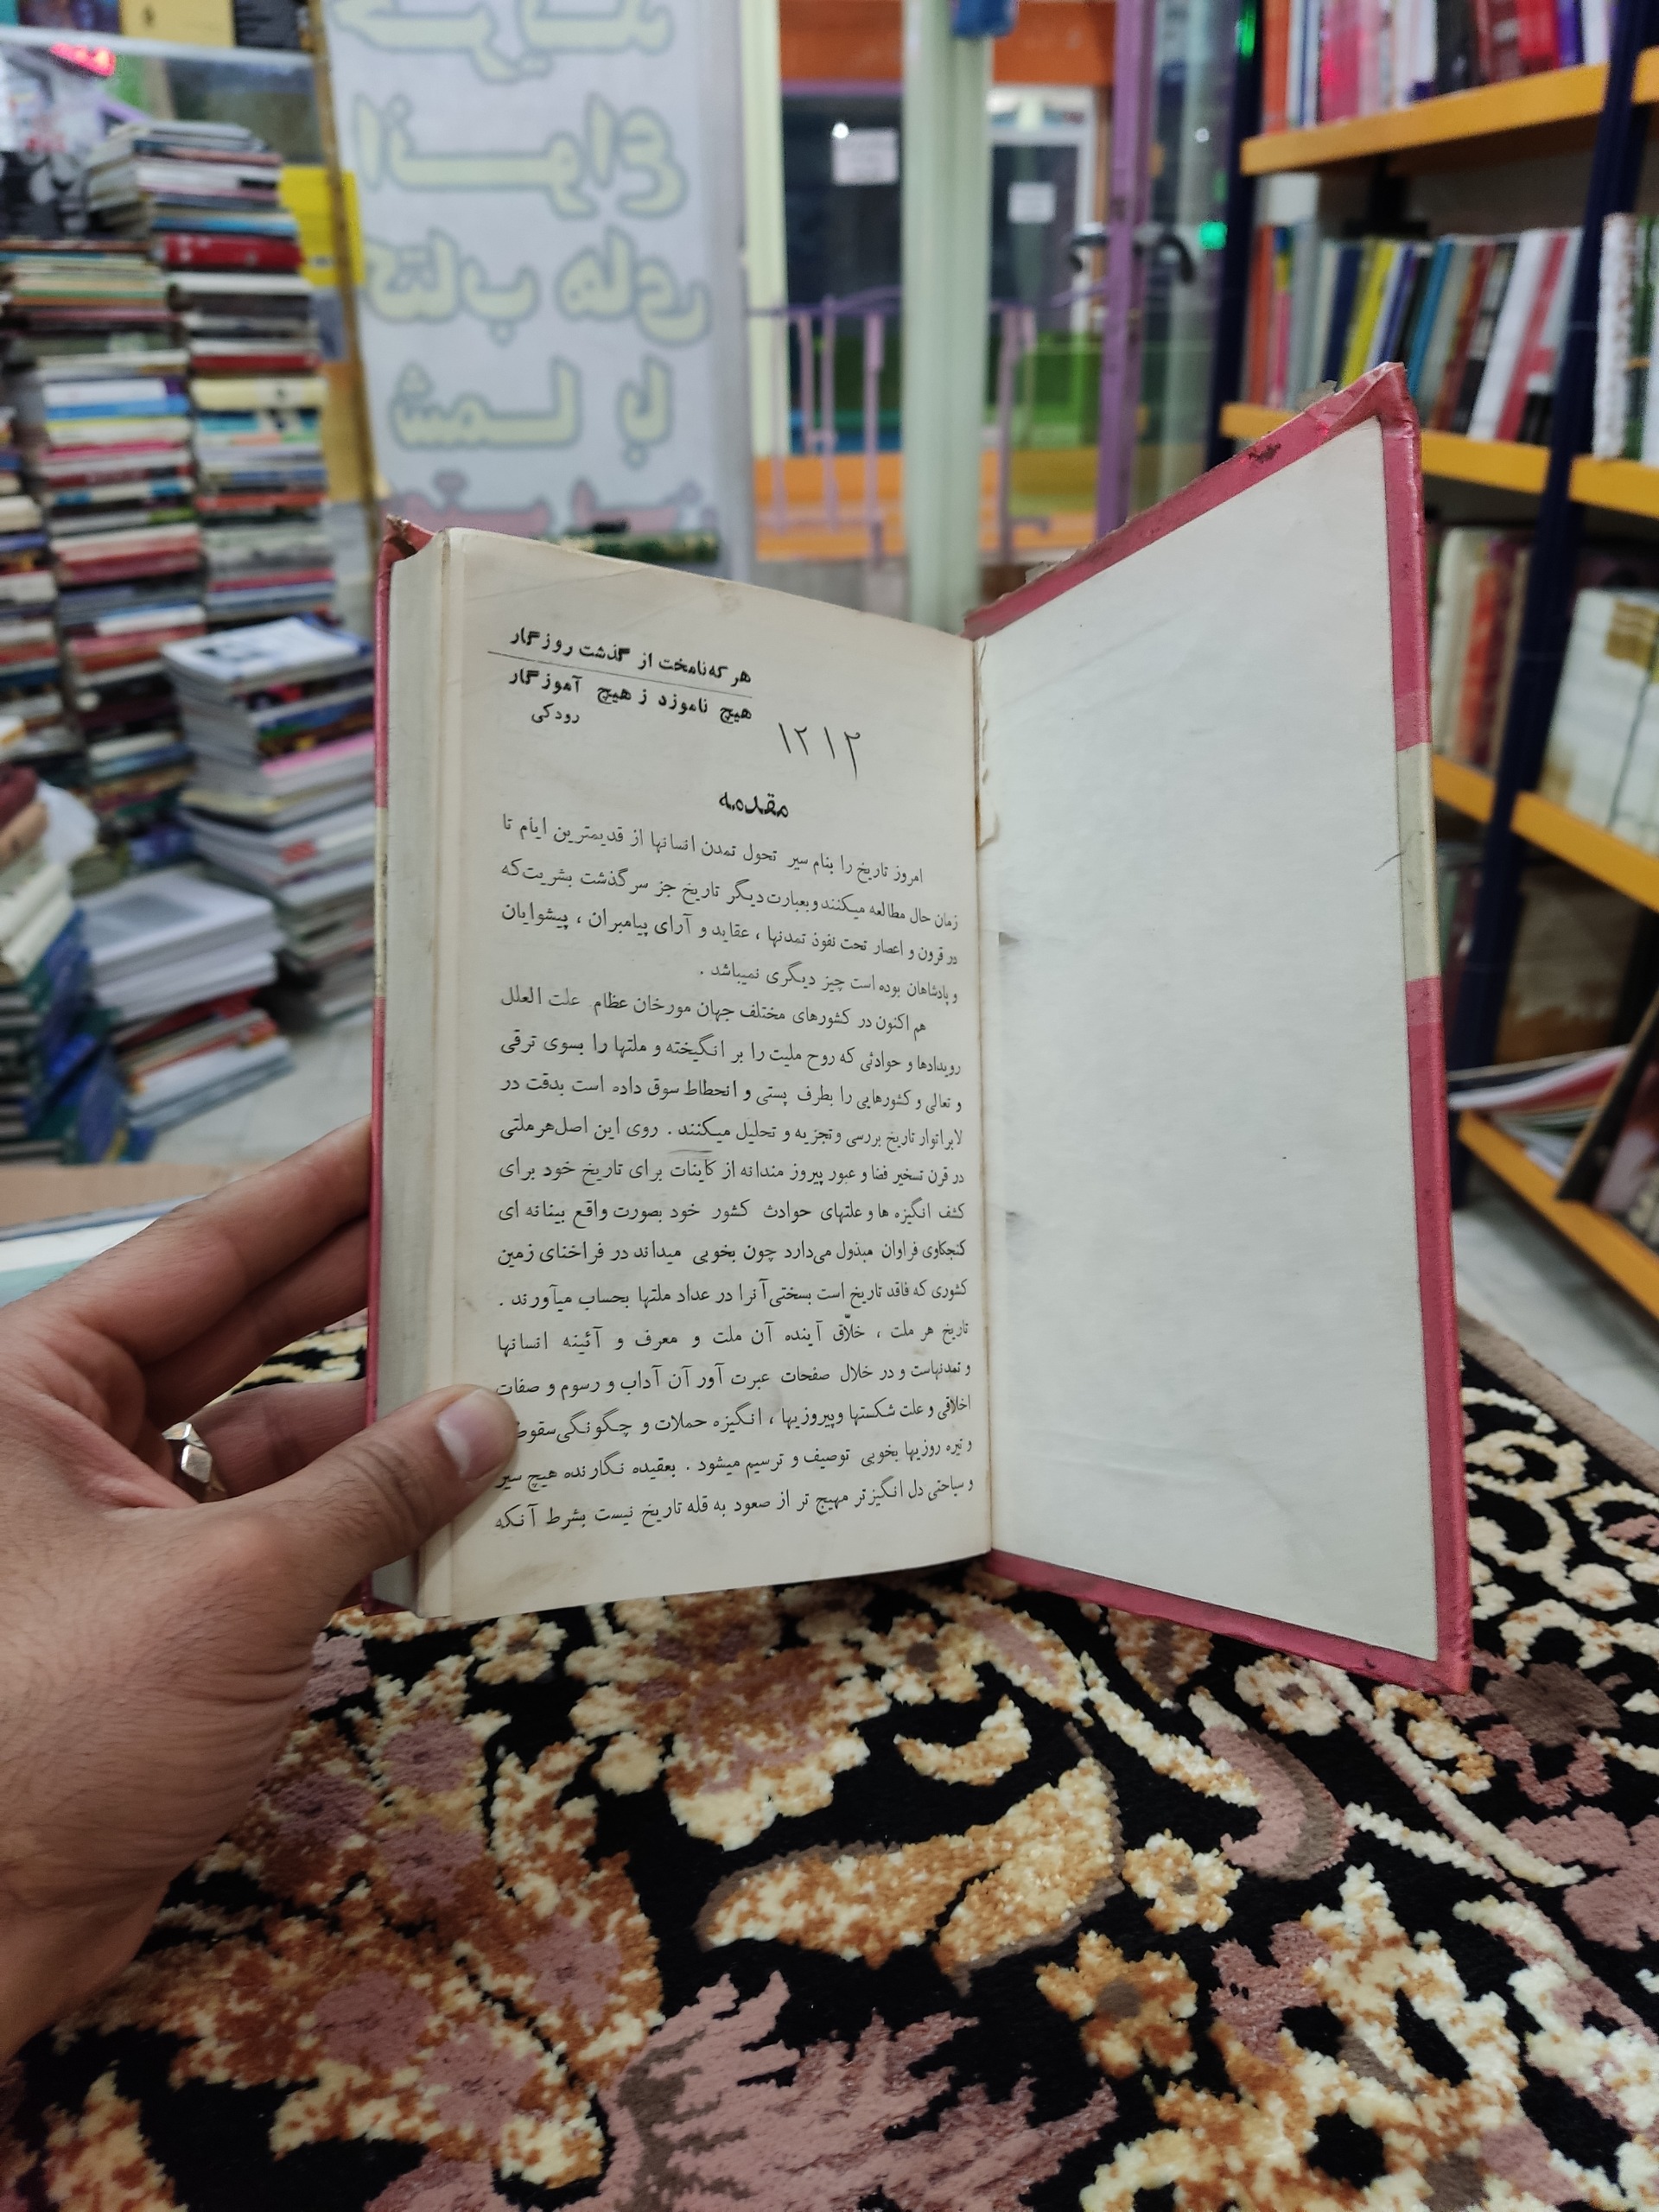 انواع
کتاب های
با شما
هر که نامخت از گذشت روزگار
هیچ ناموزد ز هیچ آموزگار
رودکی
۱۲۱۲
مقدمه
امروز تاریخ را بنام سیر تحول تمدن انسانها از قدیمترین ایام تا
زمان حال مطالعه میکنند وبعبارت دیگر تاریخ جز سرگذشت بشریت که
در قرون و اعصار تحت نفوذ تمدنها ، عقاید و آرای پیامبران ، پیشوایان
و پادشاهان بوده است چیز دیگری نمیباشد .
هم اکنون در کشورهای مختلف جهان مورخان عظام علت العلل
رویدادها و حوادثی که روح ملیت را بر انگیخته و ملتها را بسوی ترقی
و تعالی و کشورهایی را بطرف پستی و انحطاط سوق داده است بدقت در
لابراتوار تاریخ بررسی وتجزیه و تحلیل میکنند . روی این اصل هر ملتی
در قرن تسخیر فضا و عبور پیروز مندانه از کاینات برای تاریخ خود برای
کشف انگیزه ها و علتهای حوادث کشور خود بصورت واقع بینانه ای
کنجکاوی فراوان مبذول می‌دارد چون بخوبی میداند در فراخنای زمین
کشوری که فاقد تاریخ است بسختی آنرا در عداد ملتها بحساب میآورند .
تاریخ هر ملت ، خلاّق آینده آن ملت و معرف و آئینه انسانها
و تمدنهاست و در خلال صفحات عبرت آور آن آداب و رسوم و صفات
اخلاقی و علت شکستها وپیروزیها ، انگیزه حملات و چگونگی سقوط
و تیره روزیها بخوبی توصیف و ترسیم میشود . بعقیده نگارنده هیچ سیر
و سیاحتی دل انگیزتر مهیج تر از صعود به قله تاریخ نیست بشرط آنکه